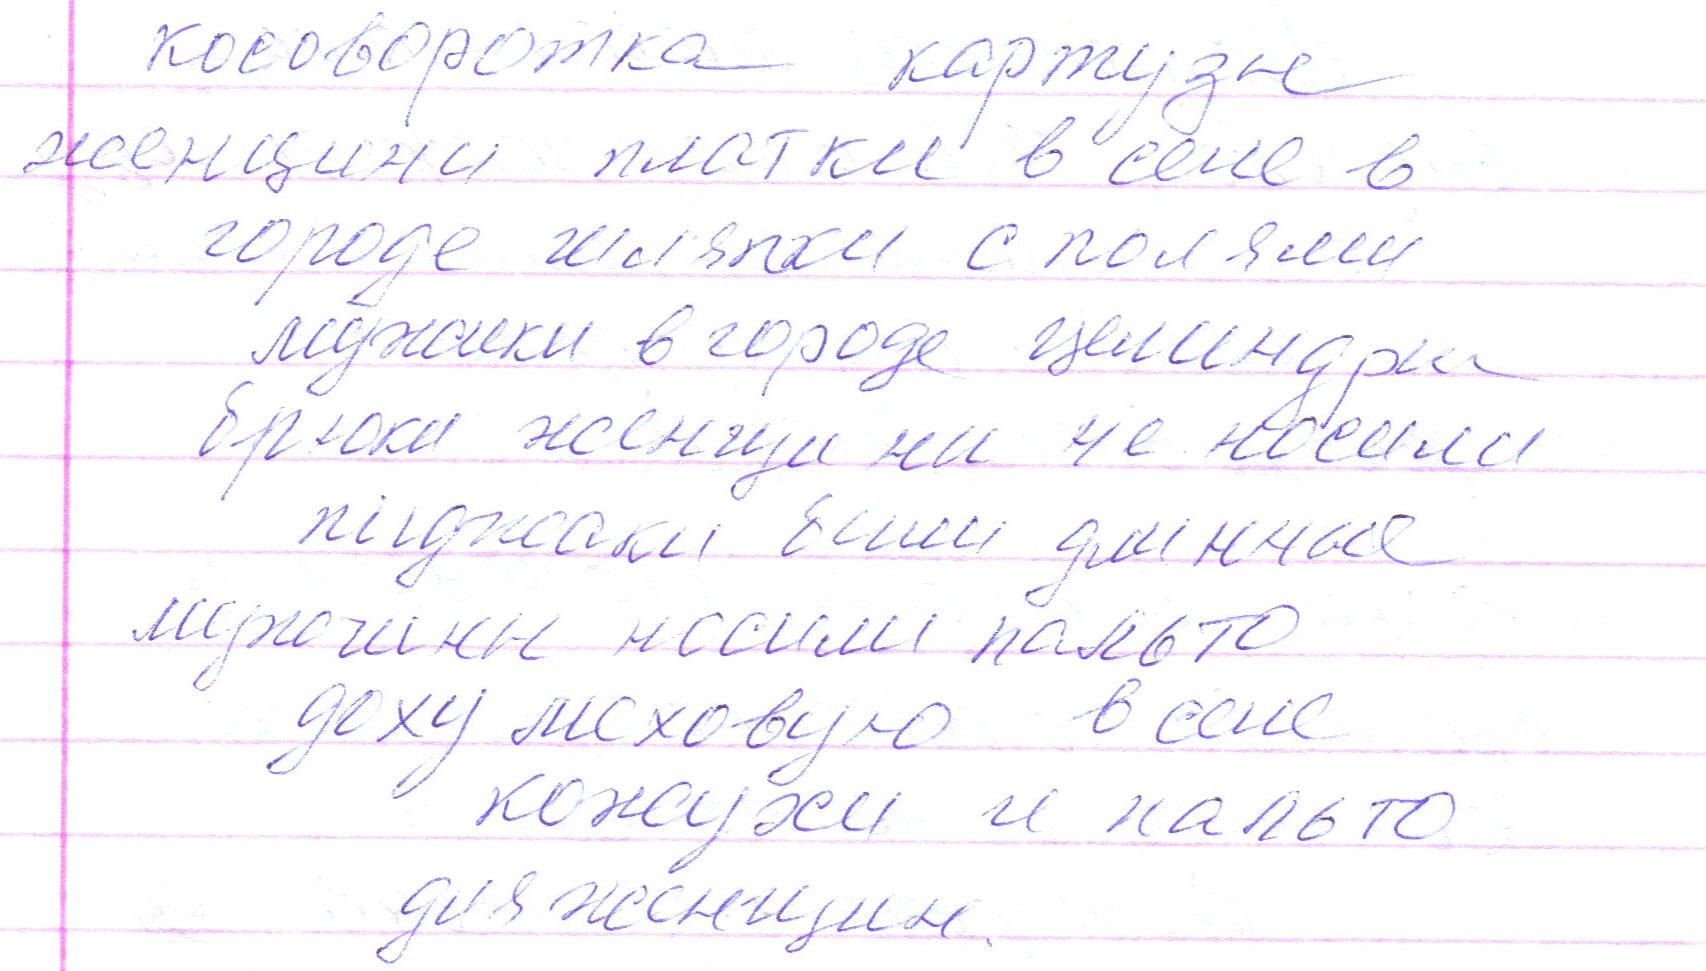 косоворотка картузы
женщини платки в селе в
городе шляпки с полями
мужики в городе целиндры
брюки женщини не носили
піджаки били длинные
мужчины носили пальто
доху меховую в селе
кожухи и пальто
для женщин.